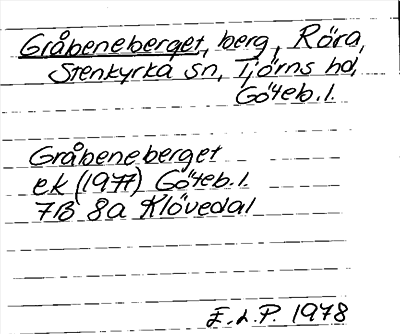 Gråbeneberget, berg, Röra,
Stenkyrka sn, Tjörns hd,
Göteb. l.
Gråbeneberget
ek (1977) Göteb. l.
7B 8a Klövedal
E.L.P. 1978